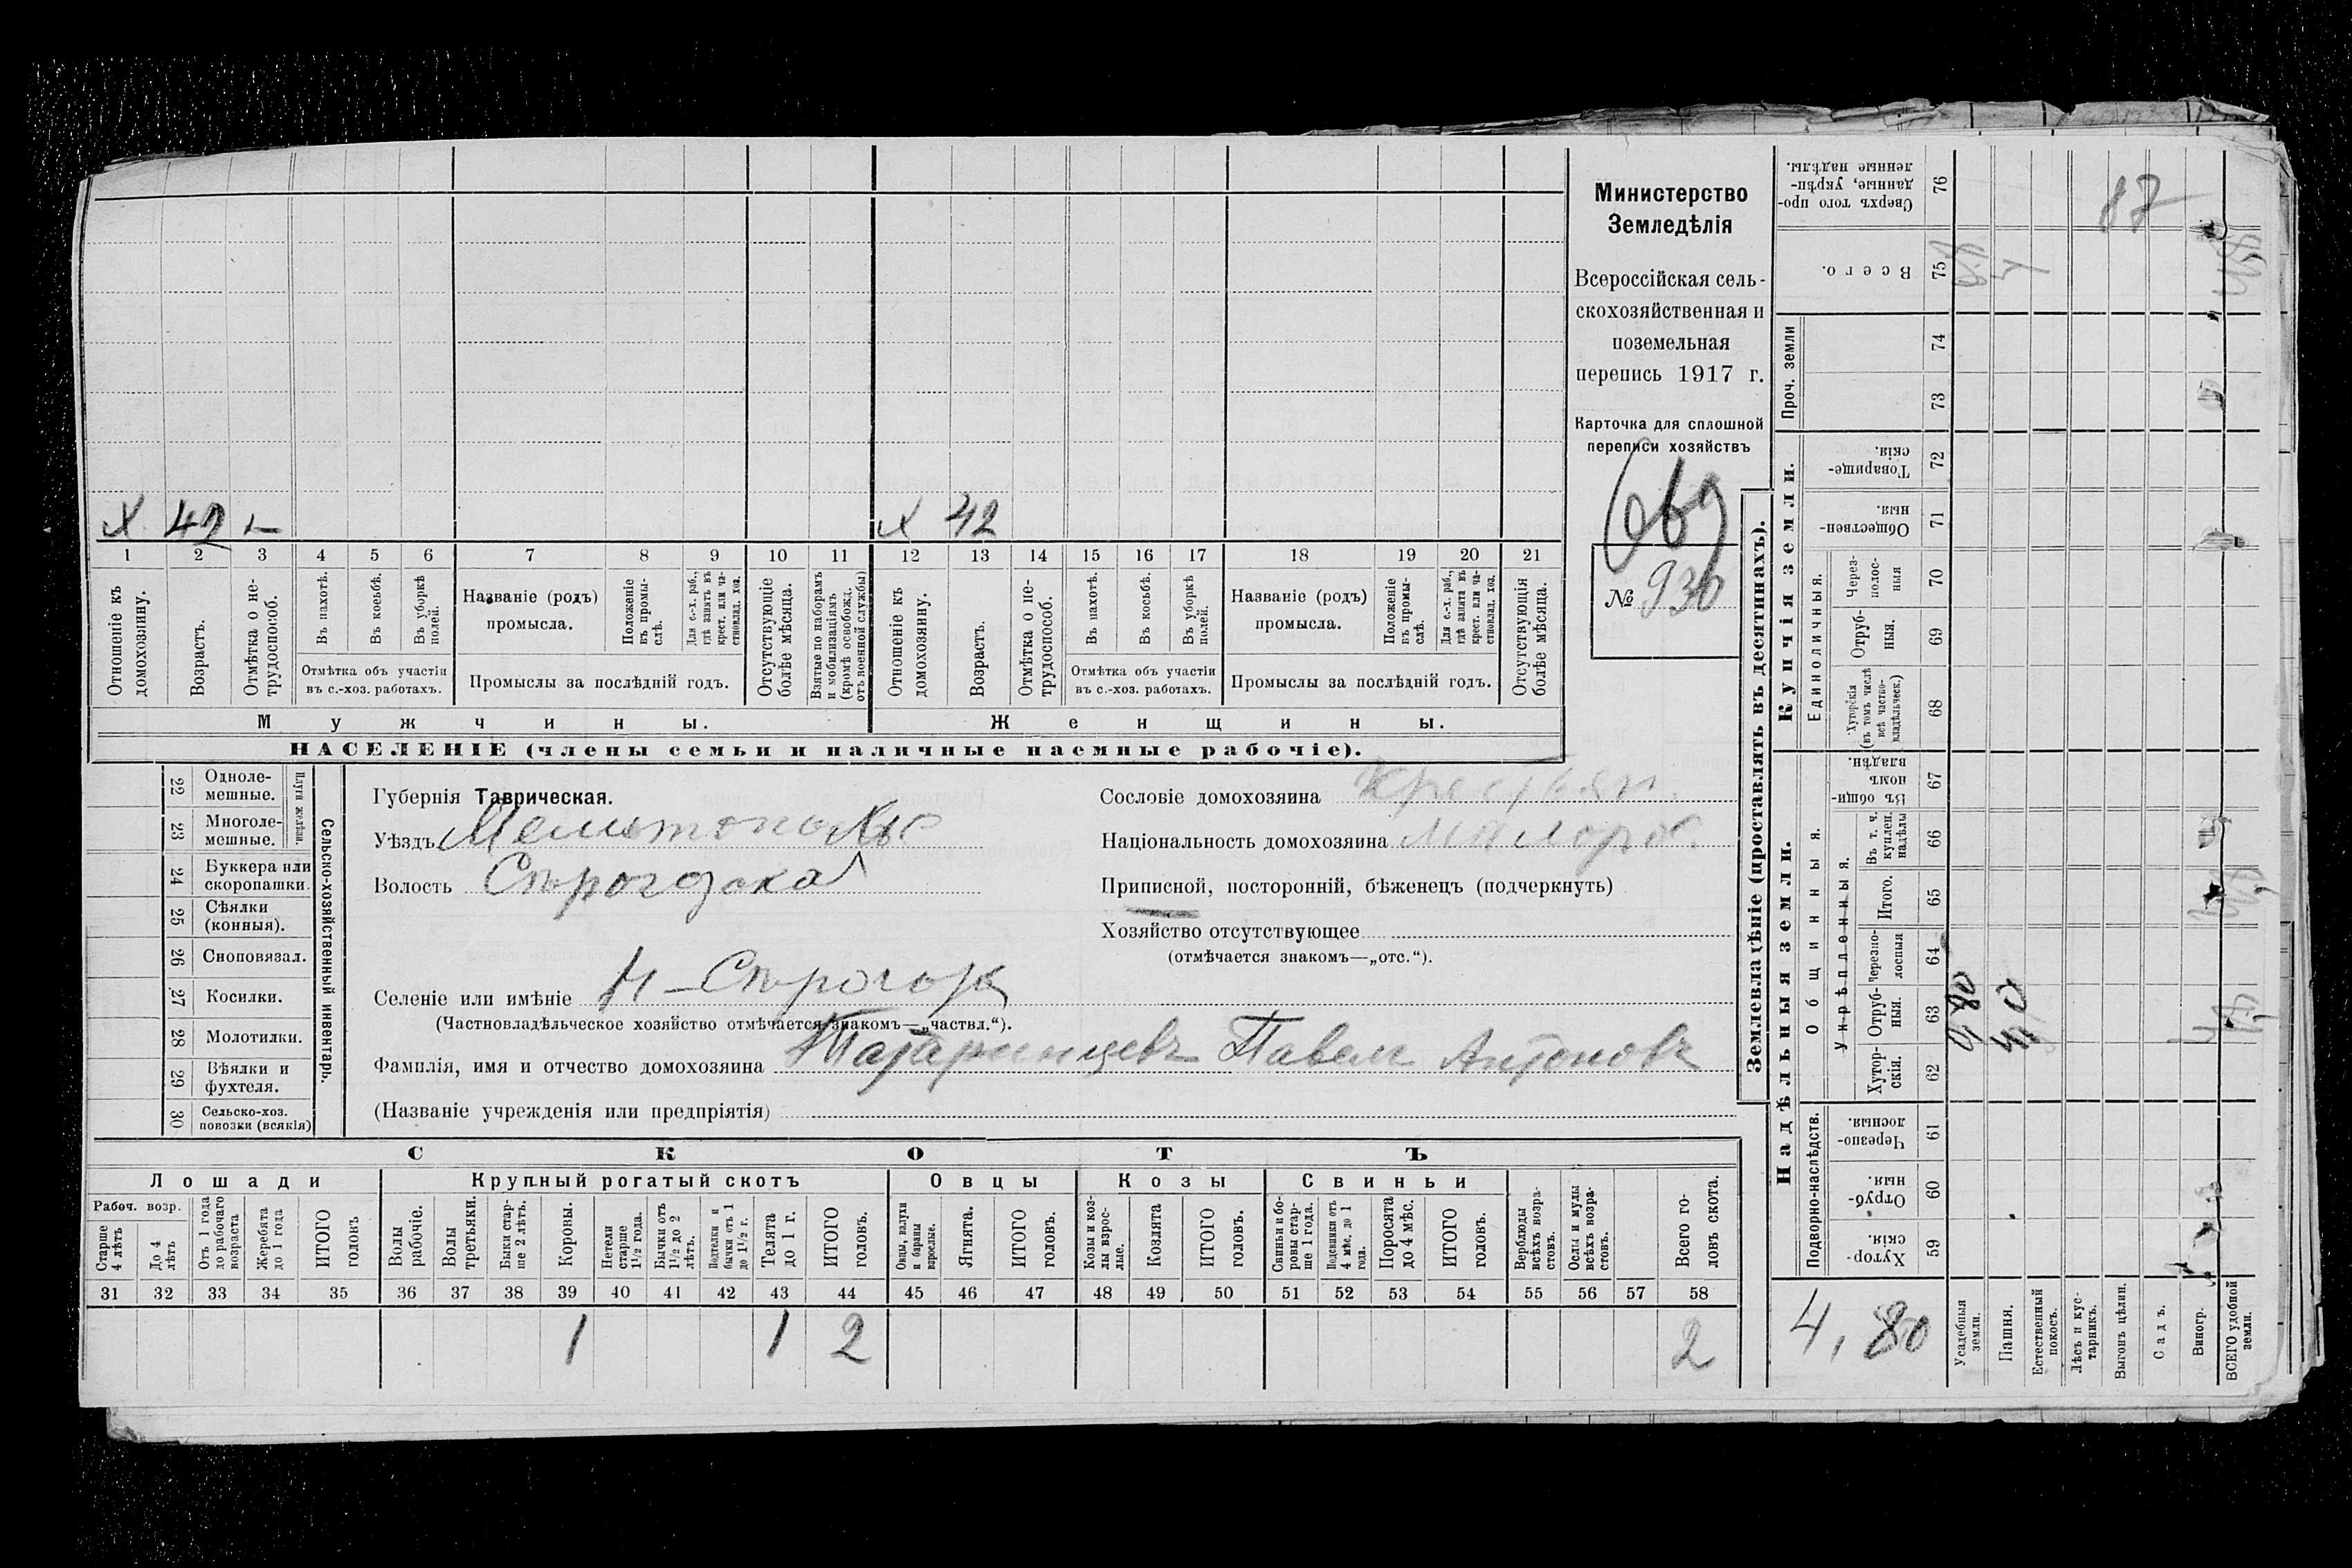 Х 42 Х 42
1 2 3 4 5 6 7 8 9 10 11 12 13 14 15 16 17 18 19 20 21
Отношеніе къ домохозяину.
Возрастъ.
Отмѣтка о нетрудоспособ.
Въ пахотѣ.
Въ косьбѣ.
Въ уборкѣ полей.
Отмѣтка объ участіи
въ с.-хоз. работахъ.
Названіе (родъ)
промысла.
Положеніе въ промыслѣ.
Для с.-х. раб., гдѣ занятъ въ крест. или частновлад. хоз.
Промыслы за послѣдній годъ.
Отсутствующіе болѣе мѣсяца.
Взятые по наборамъ и мобилизаціямъ (кромѣ освобожд. отъ военной службы)
Отношеніе къ домохозяину.
Возрастъ.
Отмѣтка о нетрудоспособ.
Въ пахотѣ.
Въ косьбѣ.
Въ уборкѣ полей.
Отмѣтка объ участіи
въ с.-хоз. работахъ.
Названіе (родъ)
промысла.
Положеніе въ промыслѣ.
Для с.-х. раб., гдѣ занята въ крест. или частновлад. хоз.
Промыслы за послѣдній годъ.
Отсутствующія болѣе мѣсяца.
Мужчины. Женщины.
НАСЕЛЕНІЕ (члены семьи и наличные наемные рабочіе).
Министерство
Земледѣлія
Всероссійская сель-
скохозяйственная и
поземельная
перепись 1917 г.
Карточка для сплошной
переписи хозяйствъ
669
№ 930
Сельско-хозяйственный инвентарь.
Плуги желѣзн.
22 Одноле-
мешные.
23 Многоле-
мешные.
24 Буккера или
скоропашки.
25 Сѣялки
(конныя).
26 Сноповязал.
27 Косилки.
28 Молотилки.
29 Вѣялки и
фухтеля.
30 Сельско-хоз.
повозки (всякія)
Губернія Таврическая.
Уѣздъ
Волость
Селеніе или имѣніе
(Частновладѣльческое хозяйство отмѣчается знакомъ—„частвл.“).
Фамилія, имя и отчество домохозяина Татаринцевъ Павелъ Антоновъ
(Названіе учрежденія или предпріятія)
Сословіе домохозяина Крестьян.
Національность домохозяина малорос.
Приписной, посторонній, бѣженецъ (подчеркнуть)
Хозяйство отсутствующее
(отмѣчается знакомъ—„отс.“).
СКОТЪ
Лошади Крупный рогатый скотъ Овцы Козы Свиньи
Рабоч. возр.
Старше 4 лѣтъ
До 4 лѣтъ
Отъ 1 года до рабочаго возраста
Жеребята до 1 года
ИТОГО головъ
Волы рабочіе.
Волы третьяки.
Быки старше 2 лѣтъ.
Коровы.
Нетели старше 1½ года.
Бычки отъ 1½ до 2 лѣтъ.
Подтелки и бычки отъ 1 до 1½ г.
Телята до 1 г.
ИТОГО головъ.
Овцы, валухи и бараны взрослые.
Ягнята.
ИТОГО головъ.
Козы и козлы взрослые.
Козлята
ИТОГО головъ.
Свиньи и боровы старше 1 года.
Подсвинки отъ 4 мѣс. до 1 года.
Поросята до 4 мѣс.
ИТОГО головъ.
Верблюды всѣхъ возрастовъ.
Ослы и мулы всѣхъ возрастовъ.
Всего головъ скота.
31 32 33 34 35 36 37 38 39 40 41 42 43 44 45 46 47 48 49 50 51 52 53 54 55 56 57 58
1 1 2 2
Землевладѣніе (проставлять въ десятинахъ).
Надѣльныя земли.
Купчія земли.
Сверхъ того проданные, укрѣпленные надѣлы. 76
87
Всего. 75
Проч. земли
74
73
Товарищескія. 72
Общественныя. 71
Единоличныя.
Черезполосныя 70
Отрубныя. 69
Хуторскія (въ томъ числѣ всѣ частновладѣльческ.) 68
Общинныя.
Въ общиномъ владѣн. 67
Укрѣпленныя.
Въ т. ч. куплен. надѣлы 66
Итого. 65
Черезполосныя 64
Отрубныя. 63
Хуторскія. 62
Подворно-наслѣдств.
Черезполосныя. 61
Отрубныя. 60
Хуторскія. 59
4,80
Усадебныя земли.
Пашня.
Естественный покосъ.
Лѣсъ и кустарникъ.
Выгонъ цѣлин.
Садъ.
Виногр.
ВСЕГО удобной земли.